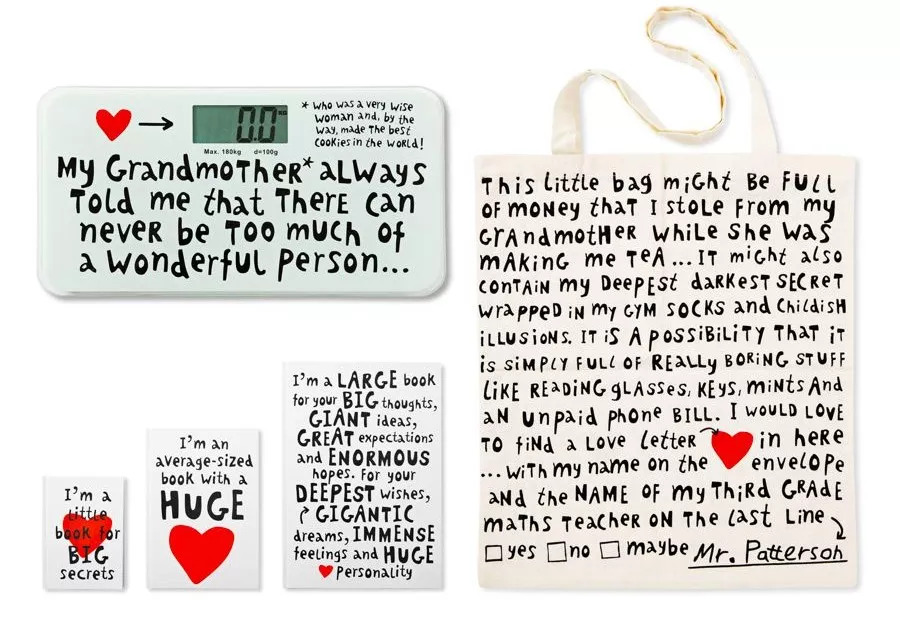 0.0
KG
Max. 180kg d=100g
* Who was a very wise
woman and, by the
way, made the best
cookies in the world!
My Grandmother* always
Told me that There can
never be Too much of
a wonderful person...
I'm a
little
book for
BIG
secrets
I'm an
average-sized
book with a
HUGE
I'm a LARGE book
for your BIG thoughts,
GIANT ideas,
GREAT expectations
and ENORMOUS
hopes. For your
DEEPEST wishes,
GIGANTIC
dreams, IMMENSE
feelings and HUGE
personality
This little bag might Be Full
OF money that I stole From my
Grandmother while she was
making me Tea...It might also
contain my Deepest darkest secret
wrapped in my gym socks and childish
illusions. It is A possibility That it
is simply full of Really Boring stuff
like Reading glasses, keys, mints And
an unpaid phone Bill. I would love
To find a Love letter in here
...with my name on the envelope
and the NAME of my Third Grade
maths Teacher on The last Line
yes no maybe Mr. Patterson